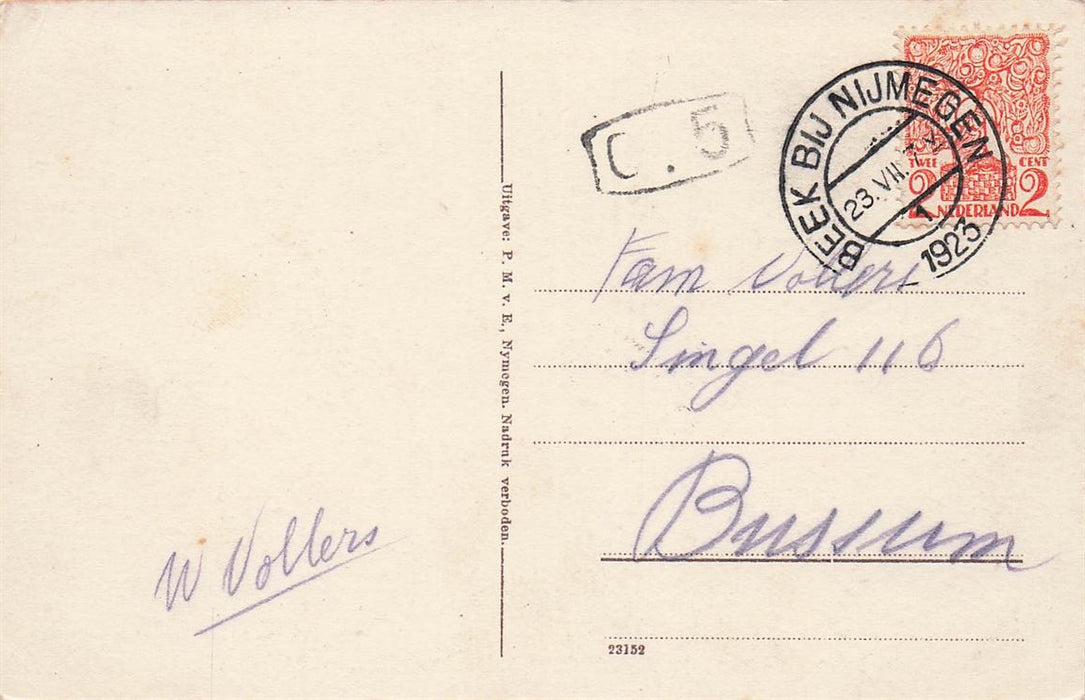 C. 5
BEEK BIJ NIJMEGEN
23.VII.
1
1923
TWEE CENT
2 NEDERLAND 2
Fam Vollers
Singel 116
Bussum
W Vollers
Uitgave: P. M. v. E., Nymegen. Nadruk verboden.
23152